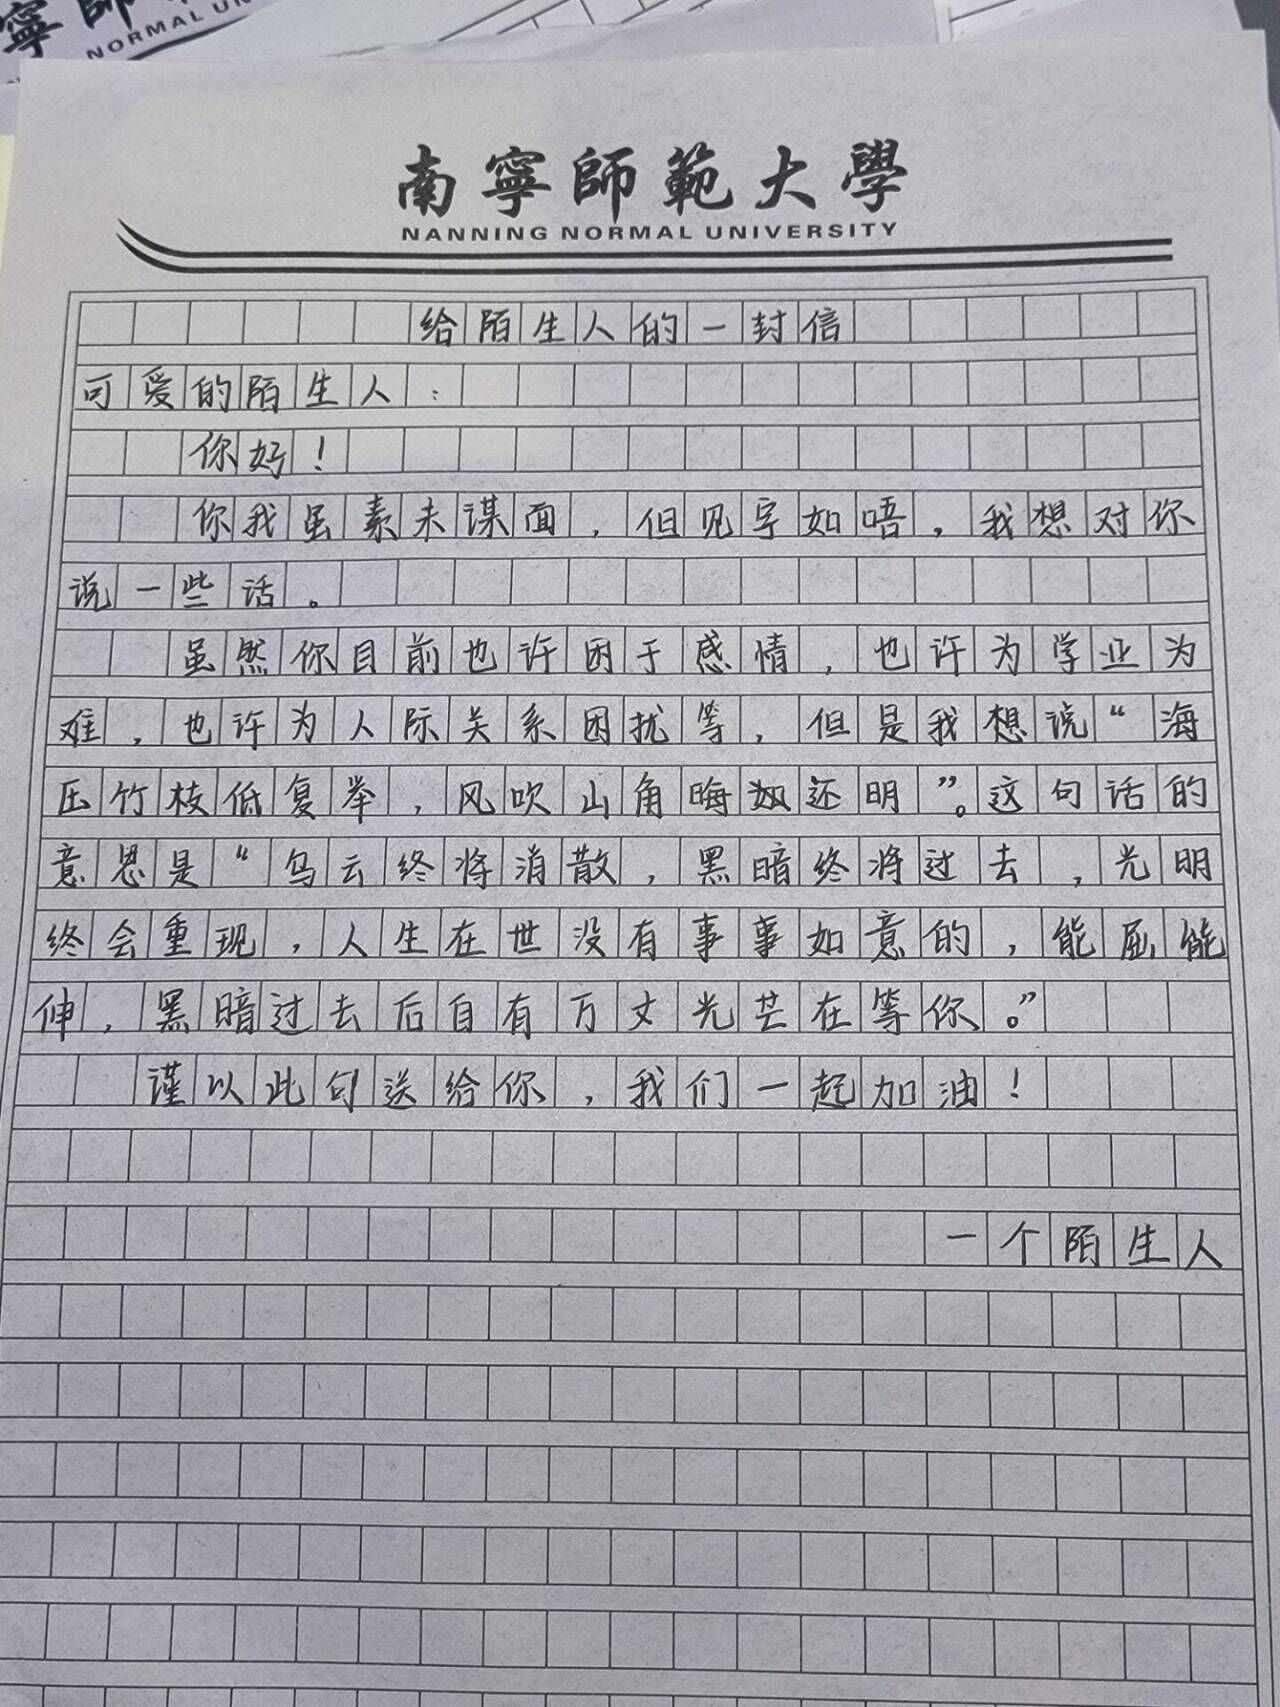 寧師
NORMAL UN
南寧師範大學
NANNING NORMAL UNIVERSITY
给陌生人的一封信
可爱的陌生人：
你好！
你我虽素未谋面，但见字如唔，我想对你
说一些话。
虽然你目前也许困于感情，也许为学业为
难，也许为人际关系困扰等，但是我想说“海
压竹枝低复举，风吹山角晦还明”。这句话的
意思是“乌云终将消散，黑暗终将过去，光明
终会重现，人生在世没有事事如意的，能屈能
伸，黑暗过去后自有万丈光芒在等你。”
谨以此句送给你，我们一起加油！
一个陌生人